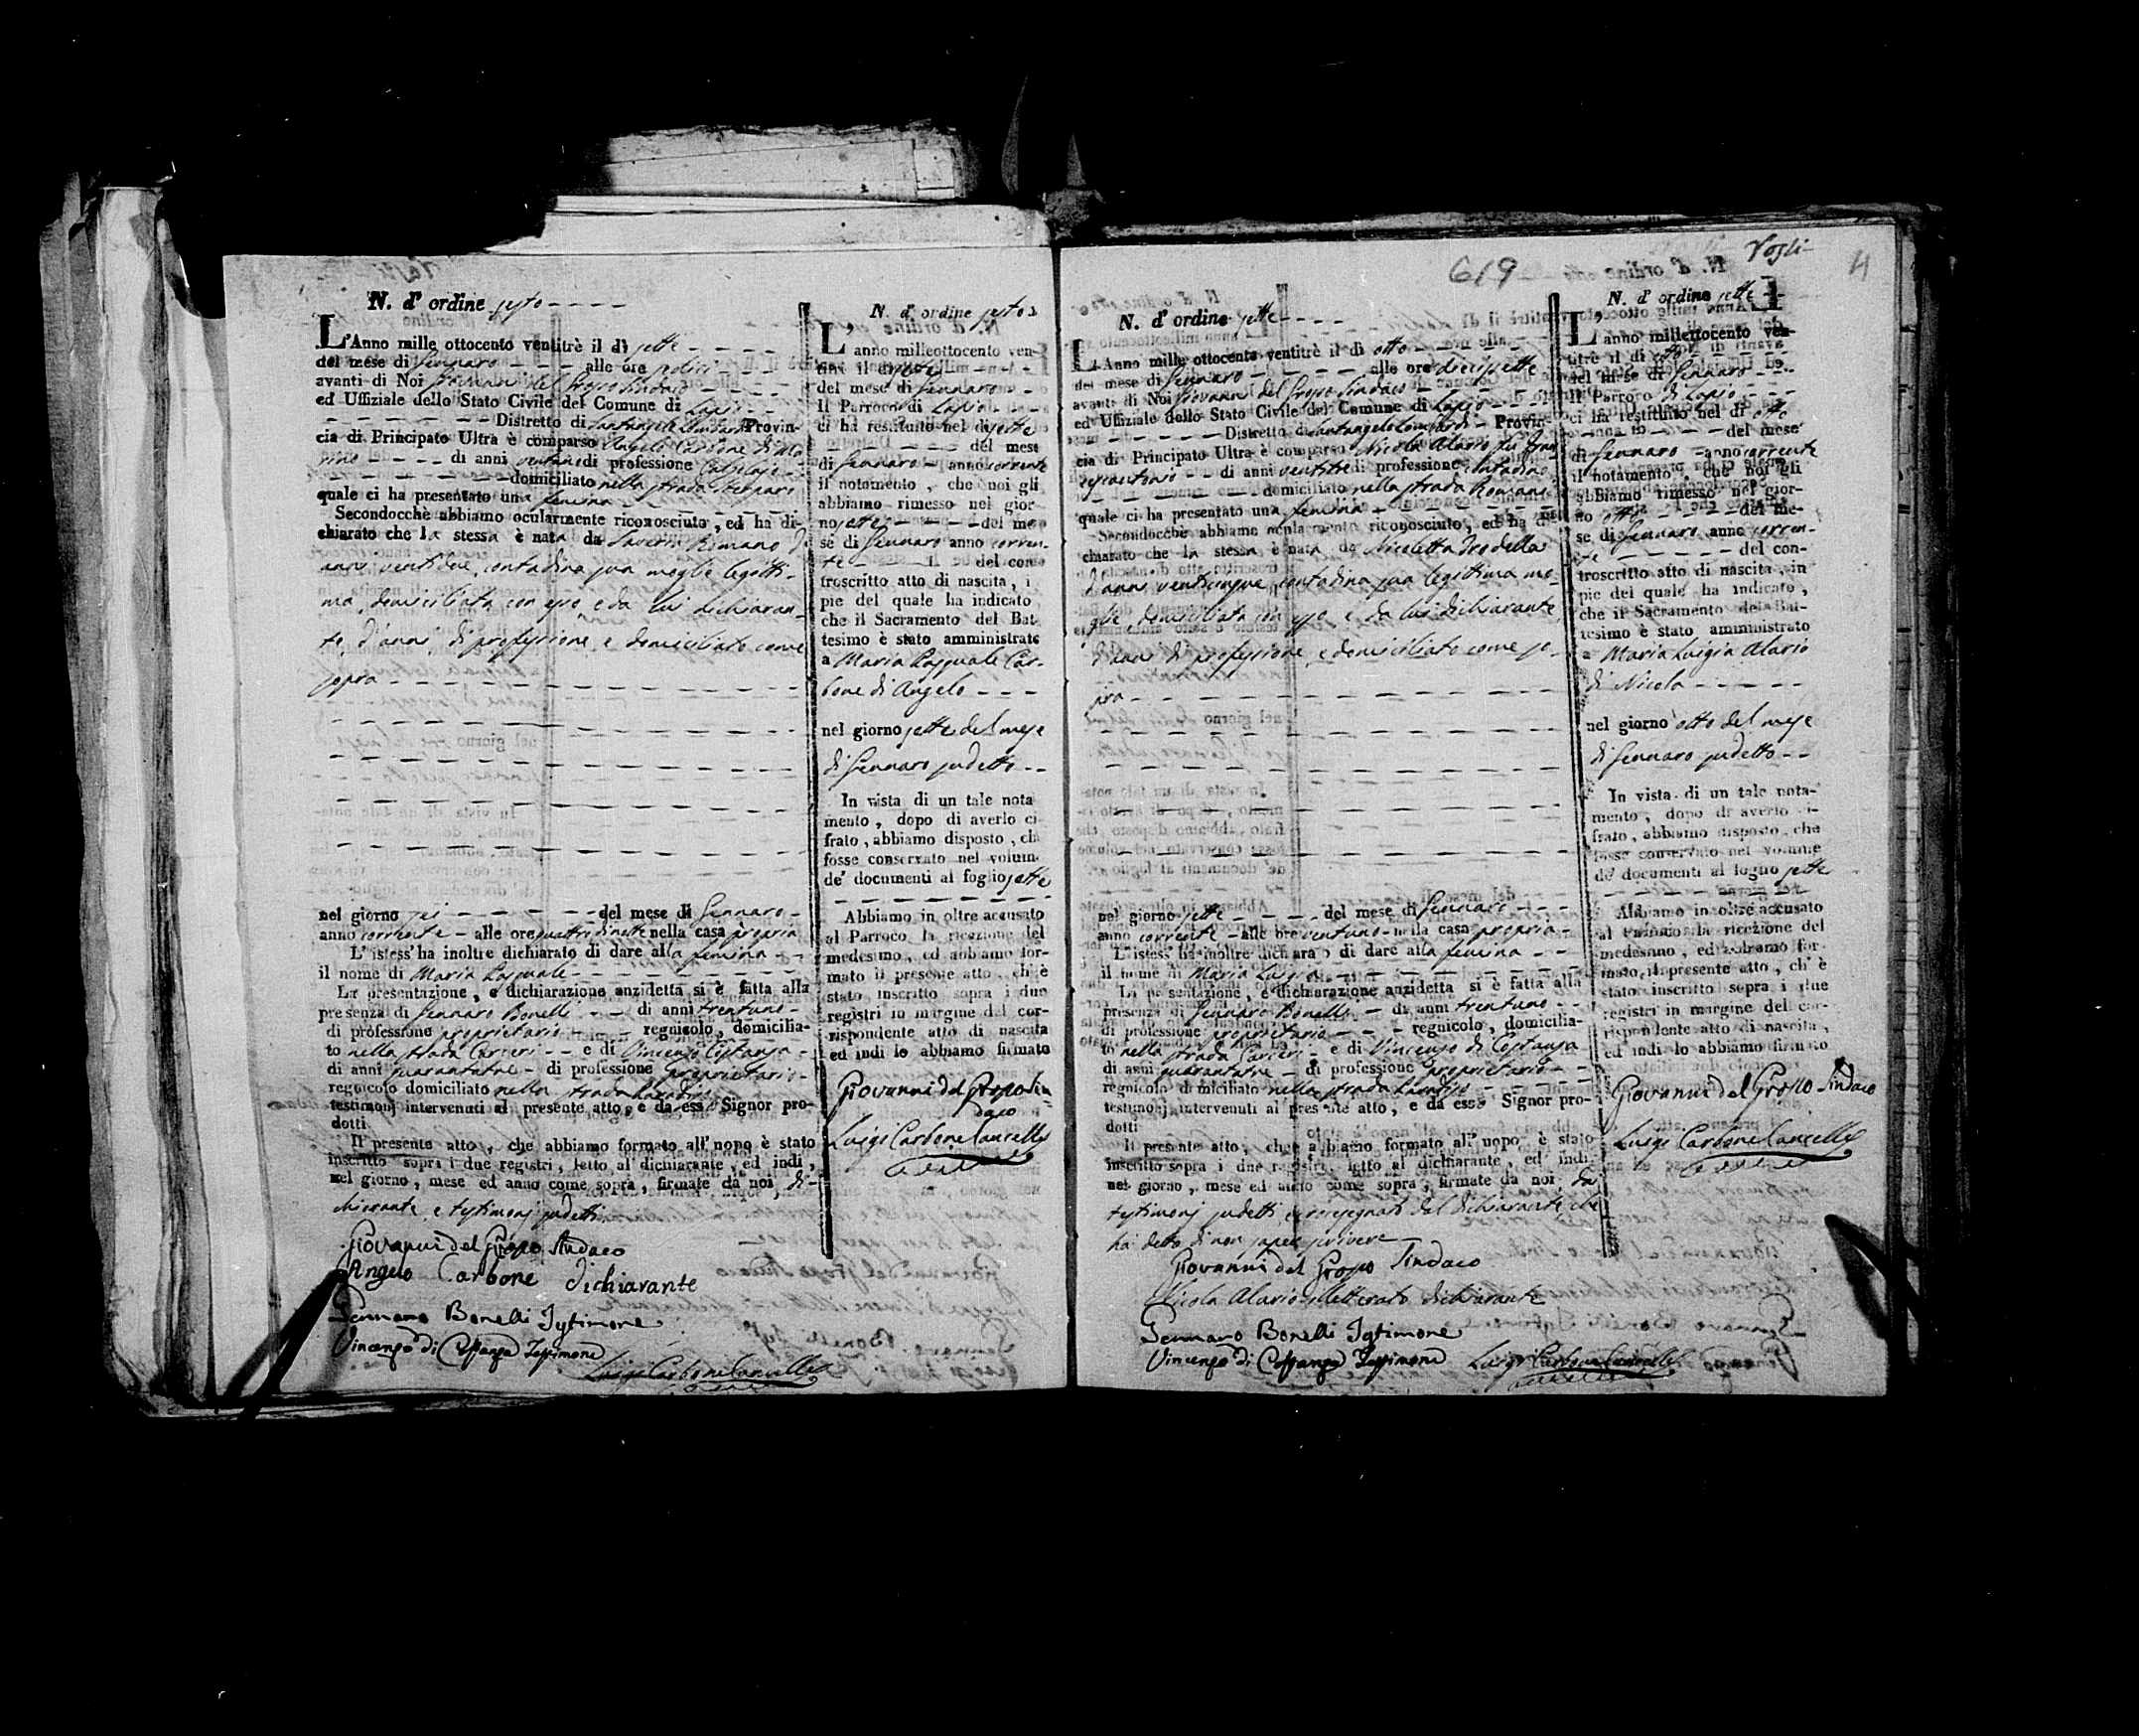 N. d'ordine sesto
L'Anno mille ottocento ventitrè il dì sette
del mese di Gennaro alle ore
avanti di Noi Giovanni del Grosso Sindaco
ed Uffiziale dello Stato Civile del Comune di Lapio
Distretto di Santangelo Lombardi Provin-
cia di Principato Ultra è comparso Angelo Carbone di
di anni ventuno di professione
domiciliato nella strada
quale ci ha presentato una femina
Secondocchè abbiamo ocularmente riconosciuto, ed ha di-
chiarato che la stessa è nata da Saveria Romano d'
anni ventidue, contadina sua moglie legitti-
ma, domiciliata con esso, e da lui dichiaran-
te, d'anni, di professione, e domiciliato come
sopra
nel giorno sei del mese di Gennaro
anno corrente alle ore quattro di notte nella casa propria
L'istess' ha inoltre dichiarato di dare alla femina
il nome di Maria Pasquale
La presentazione, e dichiarazione anzidetta si è fatta alla
presenza di Gennaro Bonelli di anni trentuno
di professione proprietario regnicolo, domicilia-
to nella strada Carceri e di Vincenzo Costanza
di anni quarantatre di professione proprietario
regnicolo domiciliato nella strada Paradiso
testimonj intervenuti al presente atto, e da esso Signor pro-
dotti
Il presente atto, che abbiamo formato all'uopo è stato
inscritto sopra i due registri, letto al dichiarante, ed indi,
nel giorno, mese ed anno come sopra, firmate da noi di-
chiarante, e testimonj sudetti
Giovanni del Grosso Sindaco
Angelo Carbone dichiarante
Gennaro Bonelli Testimone
Vincenzo di Costanza Testimone
Luigi Carbone Cancelliere
N. d'ordine sesto
L'anno milleottocento ven-
titrè il dì sette
del mese di Gennaro
Il Parroco di Lapio
ci ha restituito nel dì sette
del mese
di Gennaro anno corrente
il notamento, che noi gli
abbiamo rimesso nel gior-
no sette del me-
se di Gennaro anno corren-
te del con-
troscritto atto di nascita, i
pie del quale ha indicato
che il Sacramento del Bat
tesimo è stato amministrato
a Maria Pasquale Car-
bone di Angelo
nel giorno sette del mese
di Gennaro sudetto
In vista di un tale nota
mento, dopo di averlo ci
frato, abbiamo disposto, che
fosse conservato nel volume
de' documenti al foglio sette
Abbiamo in oltre accusato
al Parroco la ricezione del
medesimo, ed abbiamo for-
mato il presente atto, ch'è
stato inscritto sopra i due
registri in margine del cor-
rispondente atto di nascita
ed indi lo abbiamo firmato
Giovanni del Grosso Sin
daco
Luigi Carbone Cancelliere
619
4
N. d'ordine sette
L'Anno mille ottocento ventitrè il dì otto
del mese di Gennaro alle ore diecisette
avanti di Noi Giovanni del Grosso Sindaco
ed Uffiziale dello Stato Civile del Comune di Lapio
Distretto di Santangelo Lombardi Provin-
cia di Principato Ultra è comparso Nicola Alario fu
di anni ventitre di professione contadino
domiciliato nella strada Romano
quale ci ha presentato una femina
Secondocchè abbiamo ocularmente riconosciuto, ed ha di-
chiarato che la stessa è nata da Nicoletta
d'anni venticinque, contadina sua legittima mo-
glie, domiciliata con esso, e da lui dichiarante,
d'anni di professione, e domiciliato come so-
pra
nel giorno sette del mese di Gennaro
anno corrente alle ore ventuno nella casa propria
L'istess' ha inoltre dichiarato di dare alla femina
il nome di Maria Luigia
La presentazione, e dichiarazione anzidetta si è fatta alla
presenza di Gennaro Bonelli di anni trentuno
di professione proprietario regnicolo, domicilia-
to nella strada Carceri e di Vincenzo di Costanza
di anni quarantatre di professione proprietario
regnicolo domiciliato nella strada Paradiso
testimonj intervenuti al presente atto, e da esso Signor pro-
dotti
Il presente atto, che abbiamo formato all'uopo è stato
inscritto sopra i due registri, letto al dichiarante, ed indi
nel giorno, mese ed anno come sopra, firmate da noi, da
testimonj sudetti, e crocesegnato dal dichiarante, che
ha detto di non saper scrivere
Giovanni del Grosso Sindaco
Nicola Alario illetterato dichiarante
Gennaro Bonelli Testimone
Vincenzo di Costanza Testimone Luigi Carbone Cancelliere
N. d'ordine sette
L'anno milleottocento ven-
titrè il dì otto
del mese di Gennaro
Il Parroco di Lapio
ci ha restituito nel dì otto
del mese
di Gennaro anno corrente
il notamento, che noi gli
abbiamo rimesso nel gior-
no otto del me-
se di Gennaro anno corren-
te del con-
troscritto atto di nascita, in
pie del quale ha indicato,
che il Sacramento del Bat-
tesimo è stato amministrato
a Maria Luigia Alario
di Nicola
nel giorno otto del mese
di Gennaro sudetto
In vista di un tale nota-
mento, dopo di averlo ci-
frato, abbiamo disposto, che
fosse conservato nel volume
de' documenti al foglio sette
Abbiamo in oltre accusato
al Parroco la ricezione del
medesimo, ed abbiamo for-
mato il presente atto, ch'è
stato inscritto sopra i due
registri in margine del cor-
rispondente atto di nascita,
ed indi lo abbiamo firmato
Giovanni del Grosso Sindaco
Luigi Carbone Cancelliere